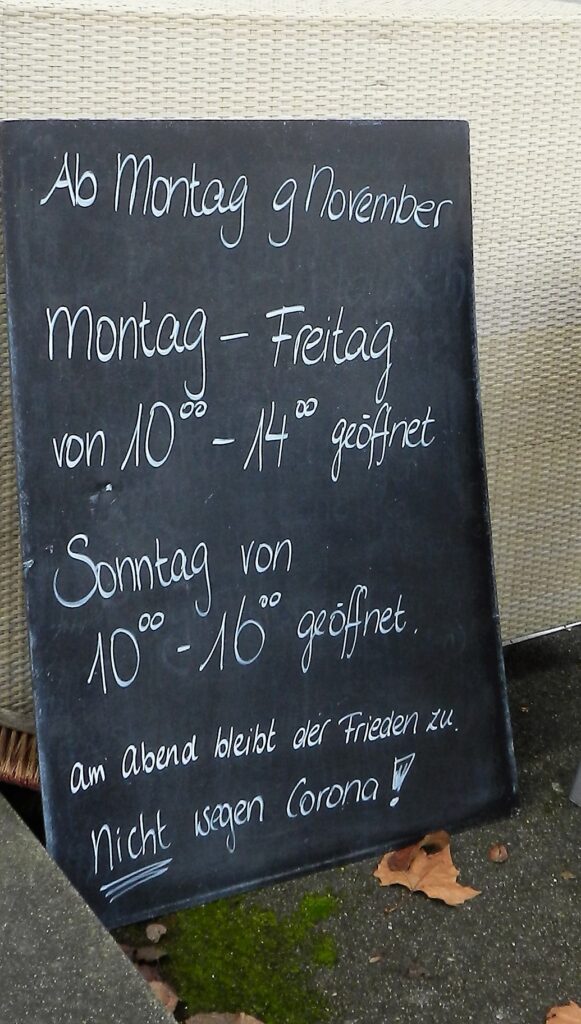 Ab Montag 9 November
Montag – Freitag
von 10⁰⁰ – 14⁰⁰ geöffnet
Sonntag von
10⁰⁰ – 16⁰⁰ geöffnet.
am Abend bleibt der Frieden zu.
Nicht wegen Corona!